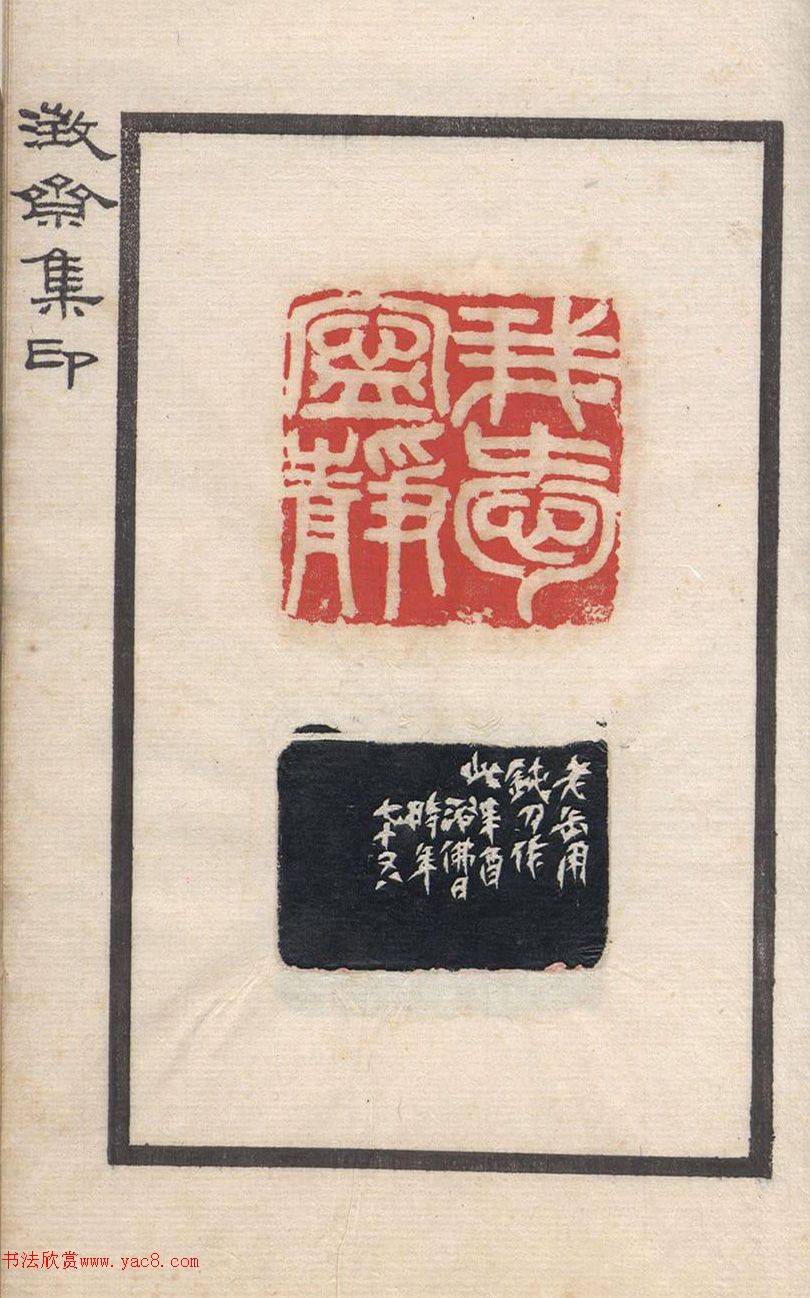 澂齋集印
我愛
寧靜
老缶用
鈍刀作
此辛酉
浴佛日
時年
七十又八
书法欣赏www.yac8.com